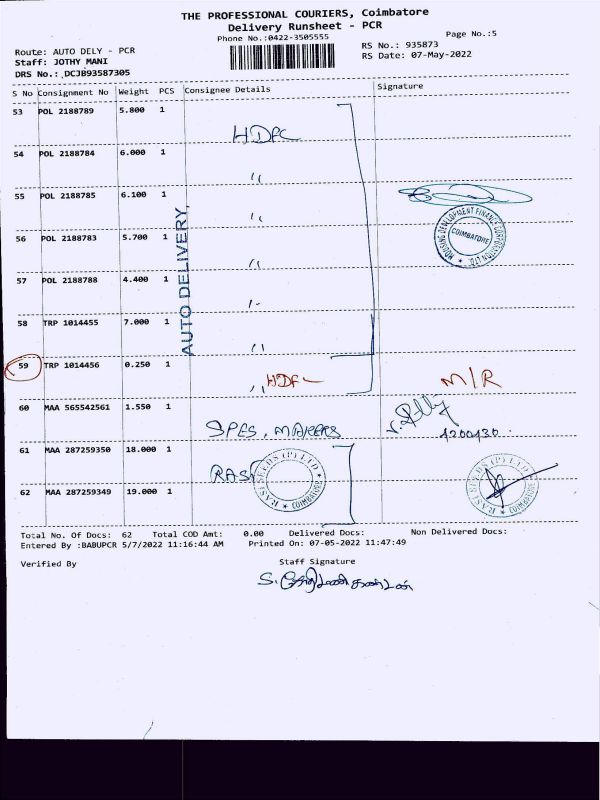 THE PROFESSIONAL COURIERS, Coimbatore
Delivery Runsheet - PCR
Phone No.:0422-3505555
Page No.:5
Route: AUTO DELY - PCR
RS No.: 935873
Staff: JOTHY MANI
RS Date: 07-May-2022
DRS No.: DCJB93587305
S No Consignment No Weight PCS Consignee Details Signature
53 POL 2188789 5.800 1 HDFC
54 POL 2188784 6.000 1 "
55 POL 2188785 6.100 1 "
56 POL 2188783 5.700 1 "
HOUSING DEVELOPMENT FINANCE CORPORATION LTD.
COIMBATORE
57 POL 2188788 4.400 1 "
58 TRP 1014455 7.000 1 "
AUTO DELIVERY
59 TRP 1014456 0.250 1 " HDFC M/R
60 MAA 565542561 1.550 1 SPES, MAKERS
4200430.
61 MAA 287259350 18.000 1 RASI
RASI SEEDS (P) LTD
COIMBATORE
RASI SEEDS (P) LTD
COIMBATORE
62 MAA 287259349 19.000 1
Total No. Of Docs: 62 Total COD Amt: 0.00 Delivered Docs: Non Delivered Docs:
Entered By :BABUPCR 5/7/2022 11:16:44 AM Printed On: 07-05-2022 11:47:49
Verified By Staff Signature